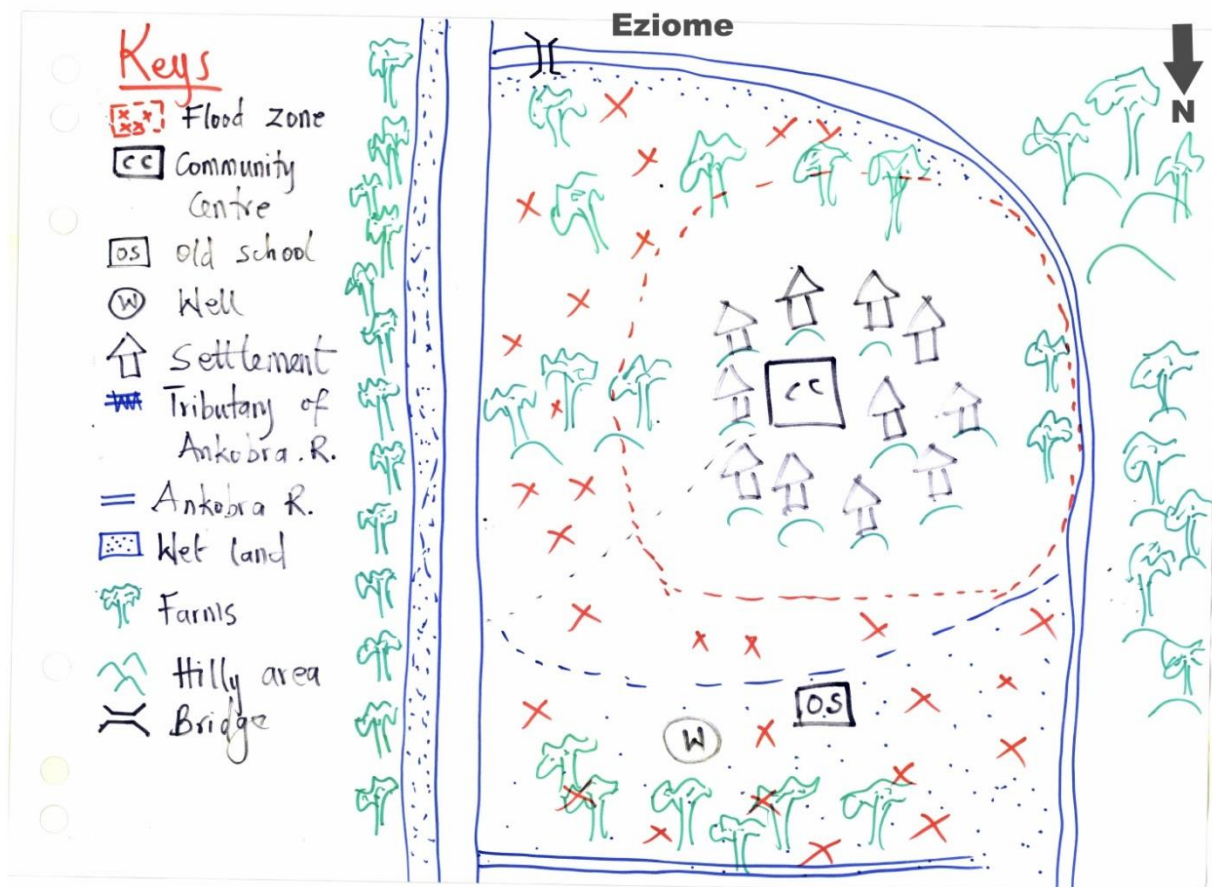 Eziome
N
Keys
Flood zone
CC Community
Centre
O.S Old school
W Well
Settlement
Tributary of
Ankobra. R.
Ankobra R.
Wet land
Farms
Hilly area
Bridge
CC
O.S
W